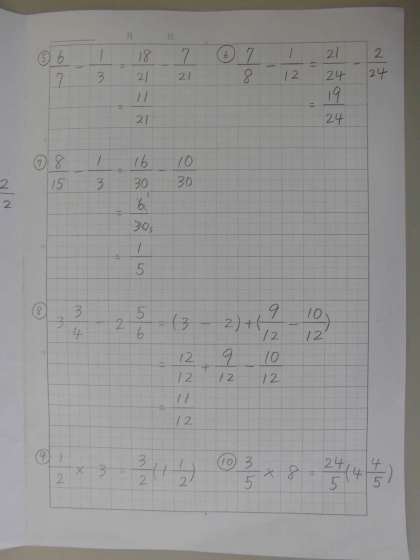 ⑤ 6/7 - 1/3 = 18/21 - 7/21
= 11/21
⑥ 7/8 - 1/12 = 21/24 - 2/24
= 19/24
⑦ 8/15 - 1/3 = 16/30 - 10/30
= 6/30
= 1/5
⑧ 3 3/4 - 2 5/6 = (3 - 2) + (9/12 - 10/12)
= 12/12 + 9/12 - 10/12
= 11/12
⑨ 1/2 × 3 = 3/2 (1 1/2)
⑩ 3/5 × 8 = 24/5 (4 4/5)